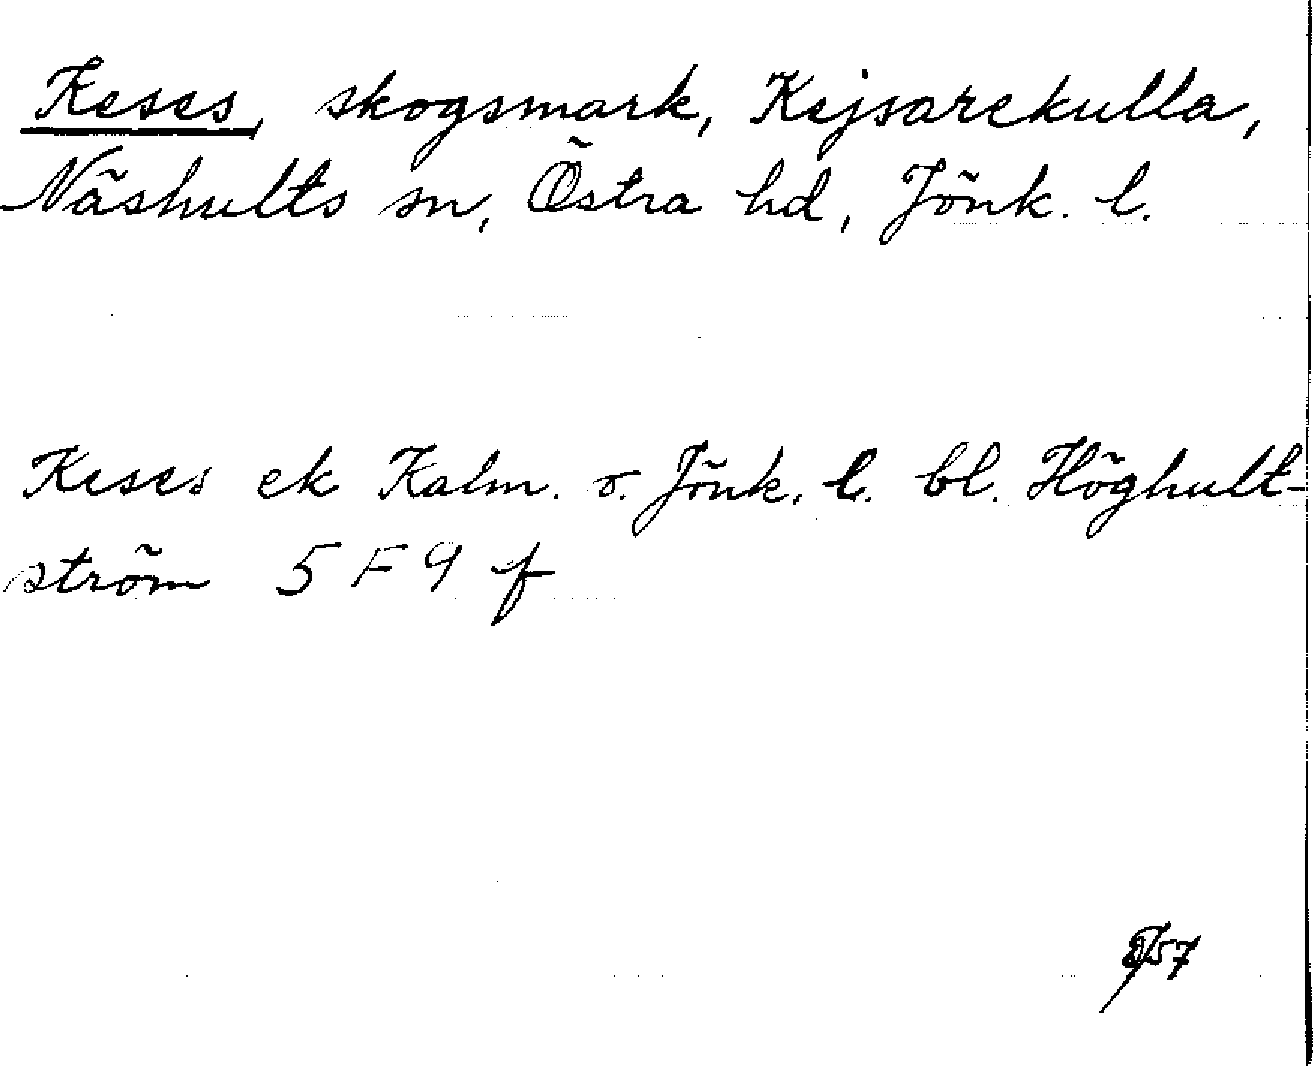 Keses, skogsmark, Kejsarekulla,
Näshults sn, Östra hd, Jönk. l.
Keses ek Kalm. o. Jönk. l. bl. Höghult-
ström 5 F 9 f